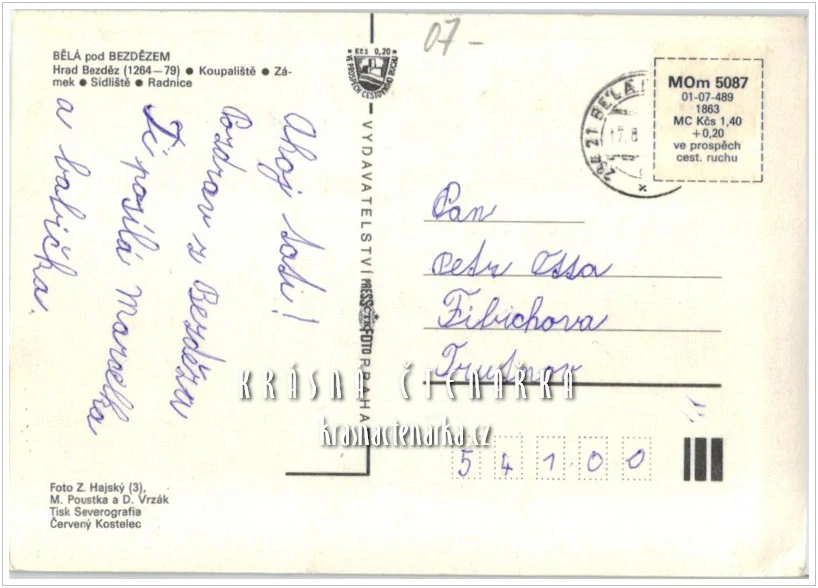 07-
BĚLÁ pod BEZDĚZEM
Hrad Bezděz (1264—79) ● Koupaliště ● Zá-
mek ● Sídliště ● Radnice
Ahoj tati!
Pozdrav z Bezděza
Ti posílá Marcelka
a babička.
Foto Z. Hajský (3),
M. Poustka a D. Vrzák
Tisk Severografia
Červený Kostelec
Kčs 0,20
VE PROSPĚCH CESTOVNÍHO RUCHU
VYDAVATELSTVÍ PRESSFOTO PRAHA
ČTK
294 21 BĚLÁ
17.8
MOm 5087
01-07-489
1863
MC Kčs 1,40
+0,20
ve prospěch
cest. ruchu
Pan
Petr Ossa
Fibichova
Trutnov
54100
KRÁSNÁ ČTENÁŘKA
krasnactenarka.cz